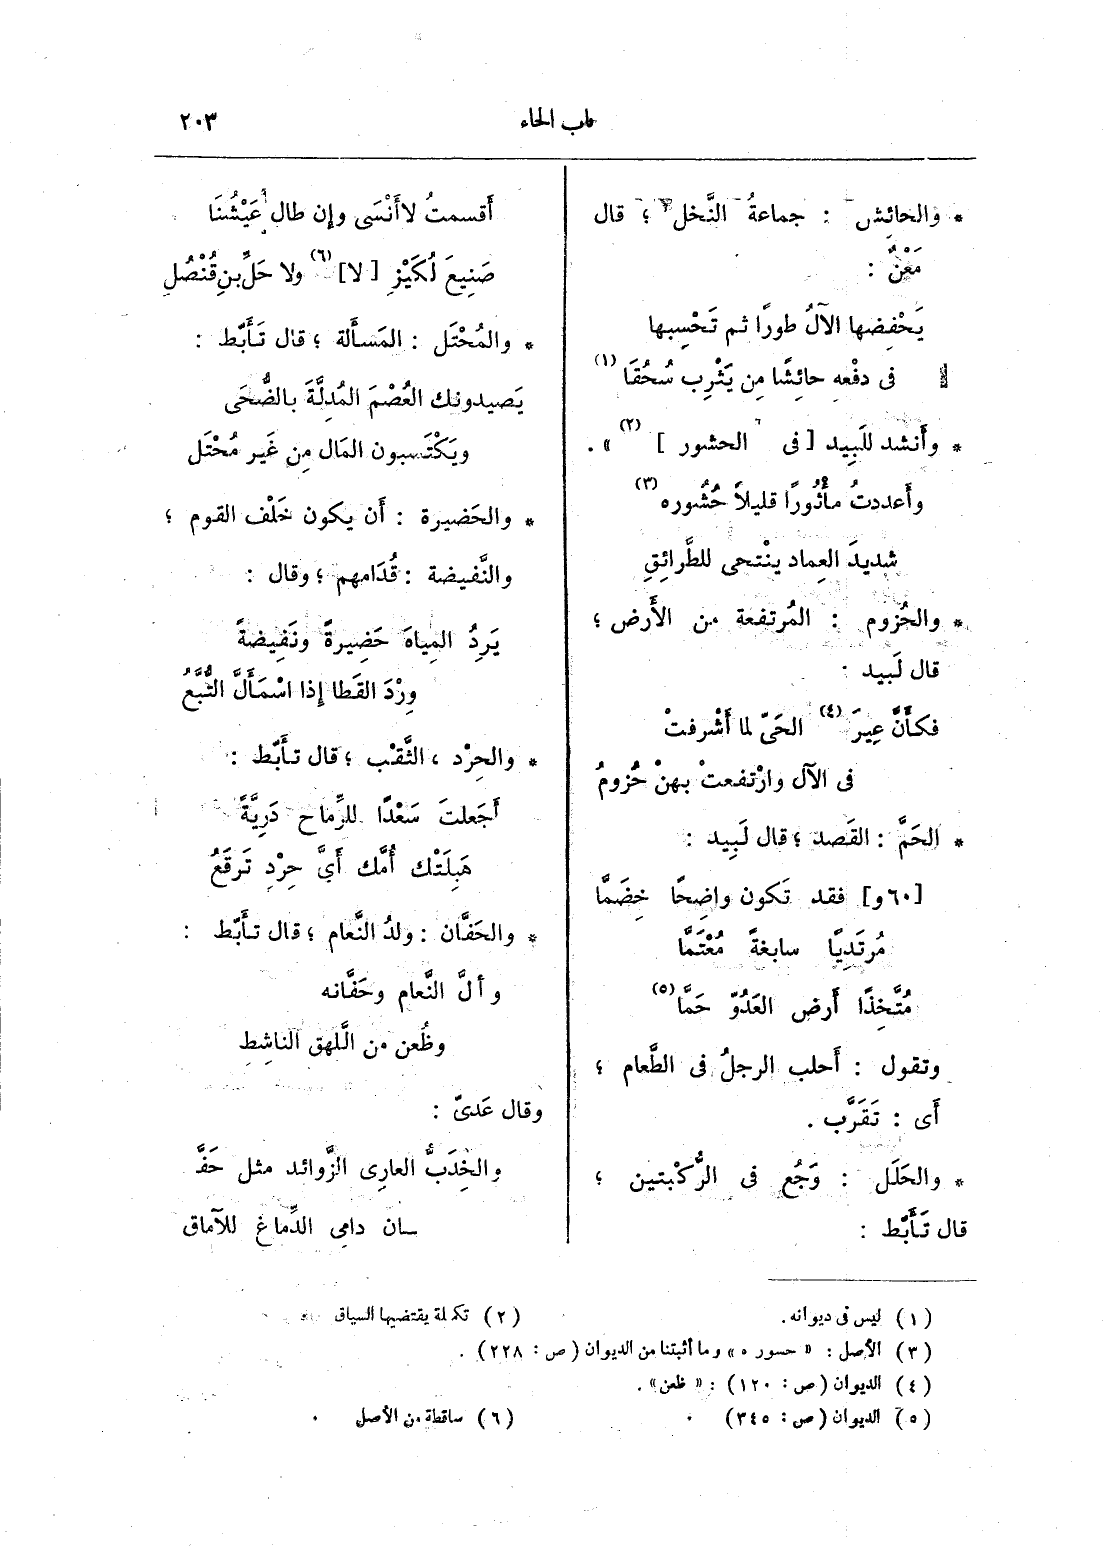 باب الحاء
٢٠٣
* والحائش : جماعةُ النَّخل ؛ قال
مَعْنٌ :
يَخْفِضها الآلُ طورًا ثم تَحْسِبها
فى دفْعه حائشًا مِن يَثْرِب سُحُقَا (١)
* وأَنشد للَبِيد [ فى الحشور ] (٢) » .
وأَعددتُ مأْثُورًا قليلاً حُشُوره (٣)
شديدَ العِماد ينْتحى للطَّرائِقِ
* والحُزوم : المُرتفعة من الأَرض ؛
قال لَبيد :
فكأَنَّ عِيرَ (٤) الحَىّ لما أَشْرفتْ
فى الآل وارْتفعتْ بهنْ حُزومُ
* الحَمَّ : القَصد ؛ قال لَبِيد :
[٦٠و] فقد تَكون واضِحًا خِضَمَّا
مُرتَدِيًا سابغةً مُعْتَمَّا
مُتَّخِذًا أَرض العَدُوّ حَمَّا (٥)
وتقول : أَحلب الرجلُ فى الطَّعام ؛
أَى : تَقَرَّب .
* والحَلَل : وَجُع فى الرُّكْبتين ؛
قال تَأَبَّط :
أَقسمتُ لاأَنْسَى وإن طال عَيْشُنَا
صَنِيعَ لُكَيْزٍ [ لا ] (٦) ولا حَلِّ بنِ قُنْصُلِ
* والمُحْتَل : المَسأَلة ؛ قال تَأَبّط :
يَصيدونك العُصْمَ المُدِلَّةَ بالضُّحَى
ويَكْتَسبون المَال مِن غَير مُحْتَل
* والحَضيرة : أَن يكون خَلْف القوم ؛
والنَّفيضة : قُدَّامهم ؛ وقال :
يَرِدُ المِياهَ حَضِيرةً ونَفِيضةً
وِرْدَ القَطا إذا اسْمَأَلَّ التُّبَّعُ
* والحِرْد ، الثَّقْب ؛ قال تأَبّط :
أَجَعلتَ سَعْدًا للرِّماح دَرِيَّةً
هَبِلَتْك أُمّك أَىَّ حِرْدٍ تَرقَعُ
* والحَفَّان : ولدُ النَّعام ؛ قال تأَبّط :
وألَّ النَّعام وحَفَّانه
وظُعن من اللَّهق الناشِطِ
وقال عَدىّ :
والخِدَبُّ العارِى الزَّوائد مثل حَفَّـ
ـان دامِى الدِّماغ للآماق
(١) ليس فى ديوانه.
(٢) تكملة يقتضيها السياق
(٣) الأصل : « حسوره » وما أثبتنا من الديوان ( ص : ٢٢٨ ) .
(٤) الديوان ( ص : ١٢٠ ) : « ظعن » .
(٥) الديوان ( ص : ٣٤٥ ) .
(٦) ساقطة من الأصل .